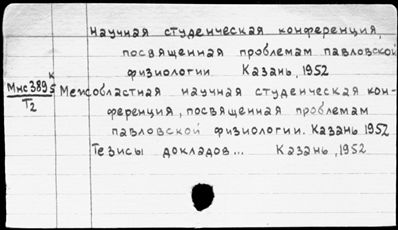 Научная студенческая конференция,
посвященная проблемам павловской
физиологии Казань, 1952
Мнс3895к
T2
Межобластная научная студенческая кон-
ференция, посвященная проблемам
павловской физиологии. Казань 1952
Тезисы докладов... Казань, 1952